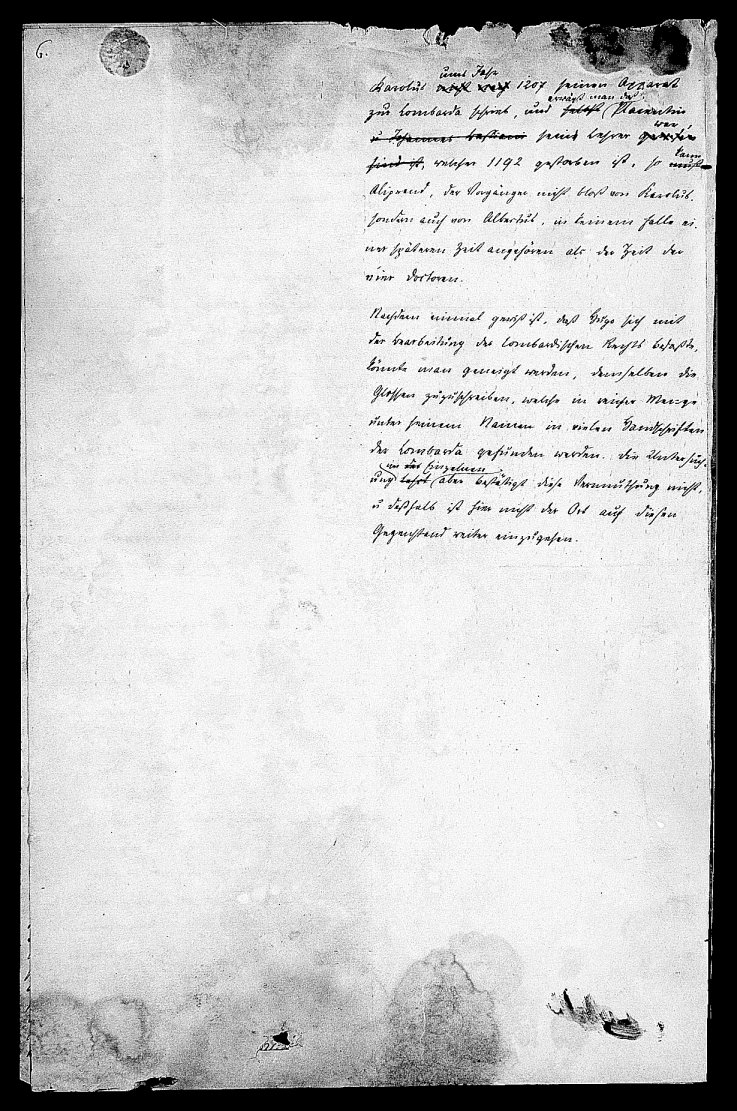 6.
ums Jahr
Karolus nicht vor 1207 seinen Apparat
erwägt man daß
zur Lombarda schrieb, und selbst Placentin
war
u Johannes Bassian sein Lehrer
kann
sind ist, welcher 1192 gestorben ist, so muß
Aliprand, der Vorgänger nicht bloß von Karolus,
sondern auch von Albertus, in keinem Falle ei-
ner späteren Zeit angehören als der Zeit der
vier Doctoren.
Nachdem einmal gewiß ist, daß Hugo sich mit
der Bearbeitung des lombardischen Rechts befaßte,
könnte man geneigt werden, demselben die
Glossen zuzuschreiben, welche in reicher Menge
unter seinem Namen in vielen Handschriften
der Lombarda gefunden werden. Die Untersuch-
im Einzelnen
ung aber bestätigt diese Vermuthung nicht,
u deßhalb ist hier nicht der Ort auf diesen
Gegenstand weiter einzugehen.